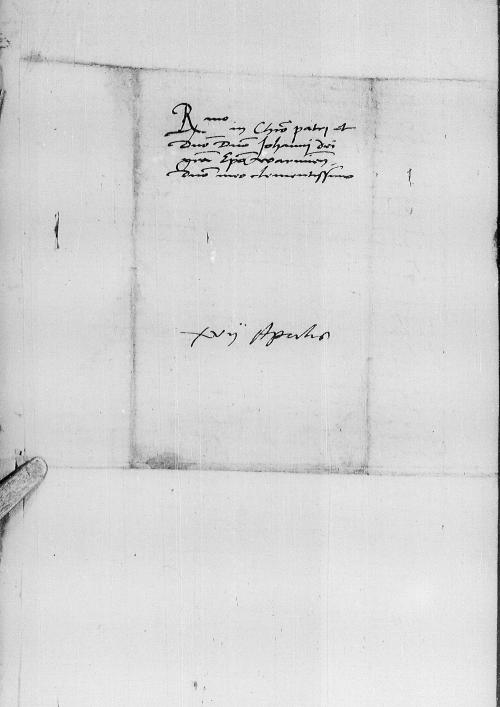 Rmo in Chro patri et
Dno Dno Johanni dei
gra Epo warmien
dno meo clementissimo
xvij Aprilis